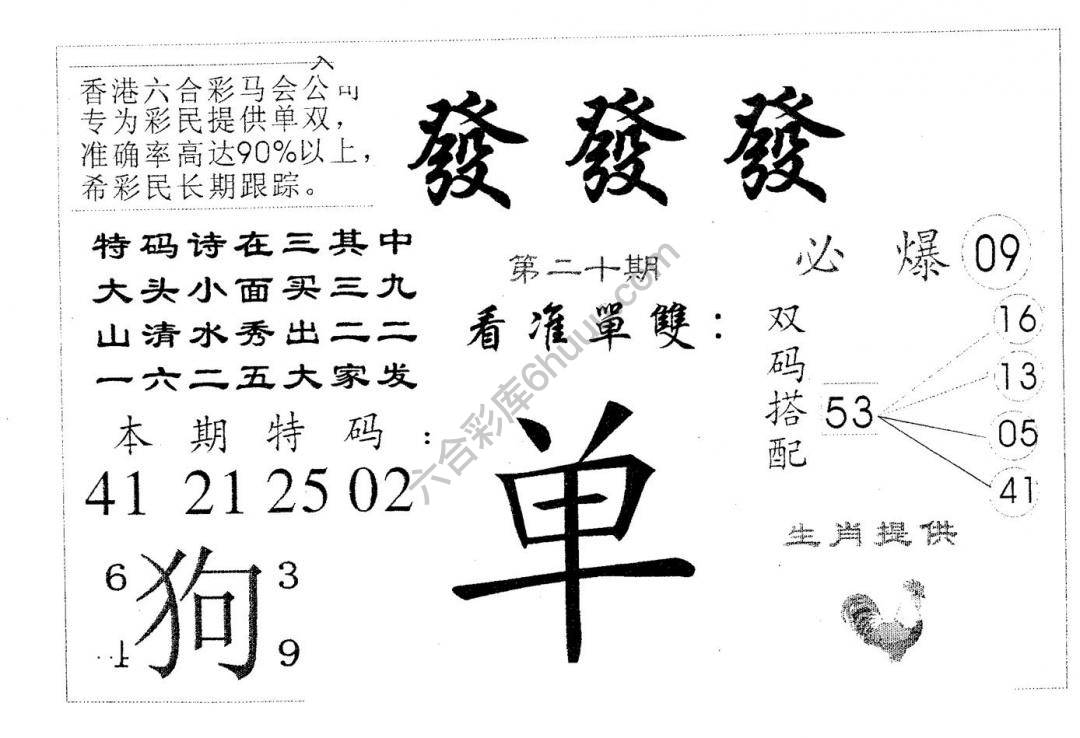 香港六合彩马会公司
专为彩民提供单双，
准确率高达90%以上，
希彩民长期跟踪。
發發發
特码诗在三其中
大头小面买三九
山清水秀出二二
一六二五大家发
第二十期
看准單雙：
单
必爆 09
双码搭配
53
16
13
05
41
本期特码：
41 21 25 02
6 3
狗
9
生肖提供
六合彩库6huuu.com